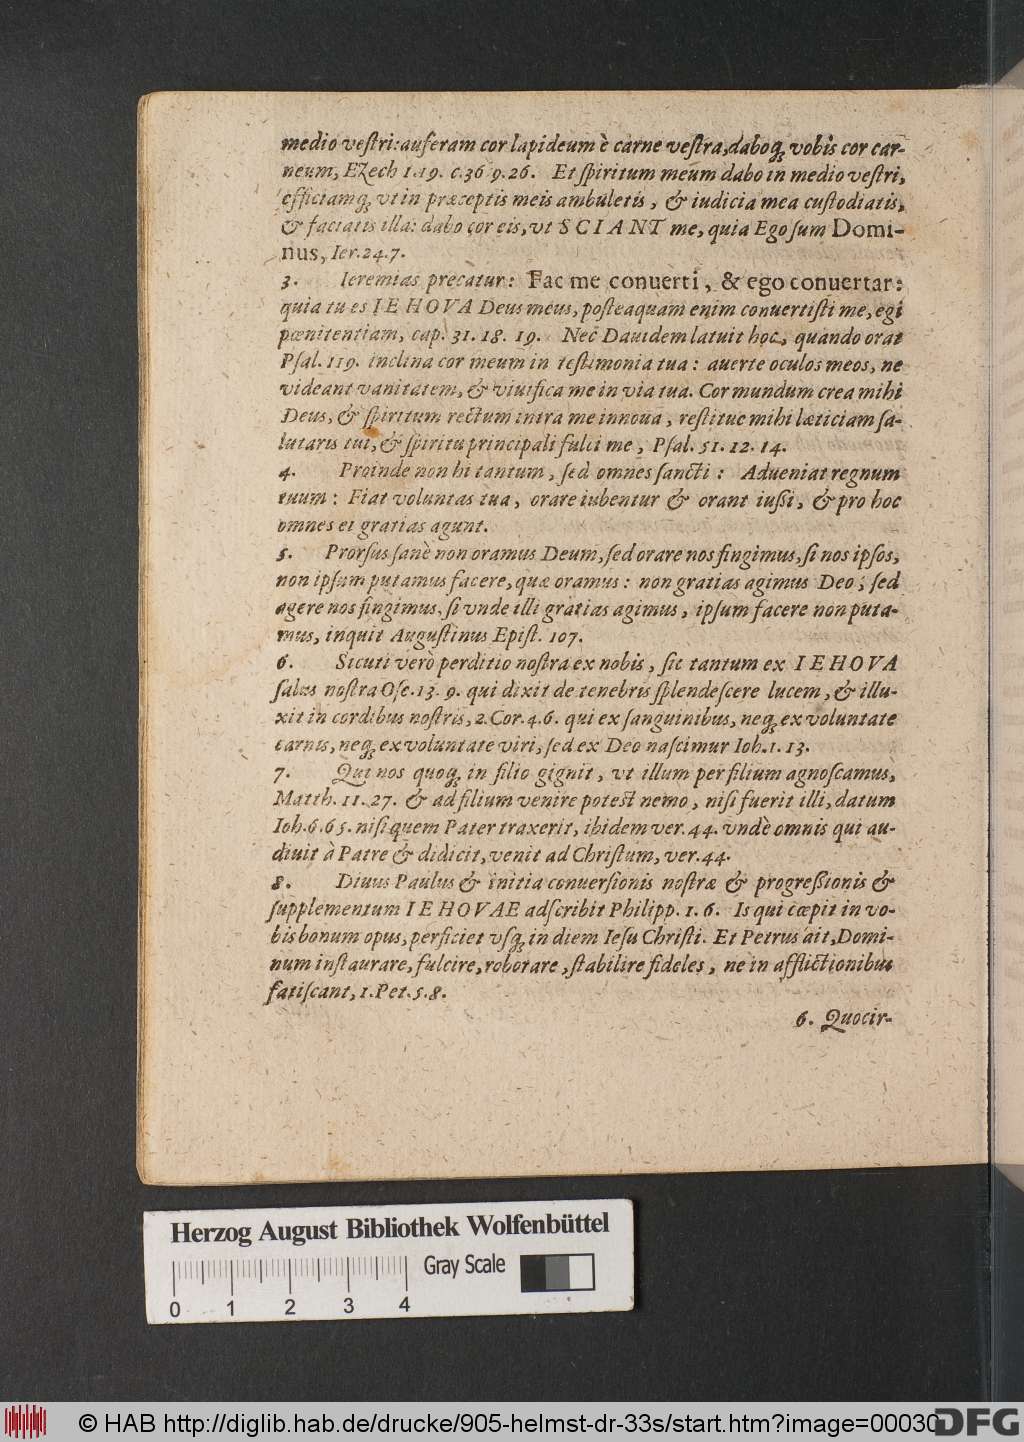 medio vestri: auferam cor lapideum è carne vestra, daboq; vobis cor car-
neum, Ezech 1.19. c.36 9.26. Et spiritum meum dabo in medio vestri,
efficiamq; vt in præceptis meis ambuletis, & iudicia mea custodiatis,
& faciatis illa: dabo cor eis, vt SCIANT me, quia Ego sum Domi-
nus, Ier.24.7.
3. Ieremias precatur: Fac me conuerti, & ego conuertar:
quia tu es IEHOVA Deus meus, posteaquam enim conuertisti me, egi
pœnitentiam, cap. 31. 18. 19. Nec Dauidem latuit hoc, quando orat
Psal. 119. inclina cor meum in testimonia tua: auerte oculos meos, ne
videant vanitatem, & viuifica me in via tua. Cor mundum crea mihi
Deus, & spiritum rectum intra me innoua, restitue mihi læticiam sa-
lutaris tui, & spiritu principali fulci me, Psal. 51. 12. 14.
4. Proinde non hi tantum, sed omnes sancti: Adueniat regnum
tuum: Fiat voluntas tua, orare iubentur & orant iussi, & pro hoc
omnes et gratias agunt.
5. Prorsus sanè non oramus Deum, sed orare nos fingimus, si nos ipsos,
non ipsum putamus facere, quæ oramus: non gratias agimus Deo, sed
agere nos fingimus, si vnde illi gratias agimus, ipsum facere non puta-
mus, inquit Augustinus Epist. 107.
6. Sicuti verò perditio nostra ex nobis, sic tantum ex IEHOVA
salus nostra Ose.13. 9. qui dixit de tenebris splendescere lucem, & illu-
xit in cordibus nostris, 2.Cor.4.6. qui ex sanguinibus, neq; ex voluntate
carnis, neq; ex voluntate viri, sed ex Deo nascimur Ioh.1.13.
7. Qui nos quoq; in filio gignit, vt illum per filium agnoscamus,
Matth. 11. 27. & ad filium venire potest nemo, nisi fuerit illi, datum
Ioh.6.65. nisi quem Pater traxerit, ibidem ver.44. vndè omnis qui au-
diuit à Patre & didicit, venit ad Christum, ver.44.
8. Diuus Paulus & initia conuersionis nostræ & progressionis &
supplementum IEHOVAE adscribit Philipp. 1. 6. Is qui cœpit in vo-
bis bonum opus, perficiet vsq; in diem Iesu Christi. Et Petrus ait, Domi-
num instaurare, fulcire, roborare, stabilire fideles, ne in afflictionibus
fatiscant, 1.Pet.5.8.
6. Quocir-
Herzog August Bibliothek Wolfenbüttel
Gray Scale
0 1 2 3 4
© HAB http://diglib.hab.de/drucke/905-helmst-dr-33s/start.htm?image=00030
DFG